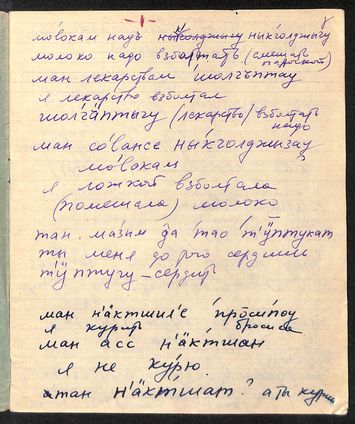 -1-
мо́вокам надъ ны́кголджыгу
молоко надо взболтать (смешать палочкой)
ман лекарствам шо́лгъптау
я лекарство взболтал
шо́лгӓптыгу (лекарство) взболтать надо
ман со́вансе ны́кголджызау
мо́вокам
я ложкой взболтала
(помешала) молоко
тан ма́зым да тао т'ӱ́птукат
ты меня до
т'ӱ́птугу – сердить
ман н'ӓктшиле про́си́поу
я курить бросила
ман асс н'ӓктшан
я не курю.
атан н'ӓктшат? а ты куришь